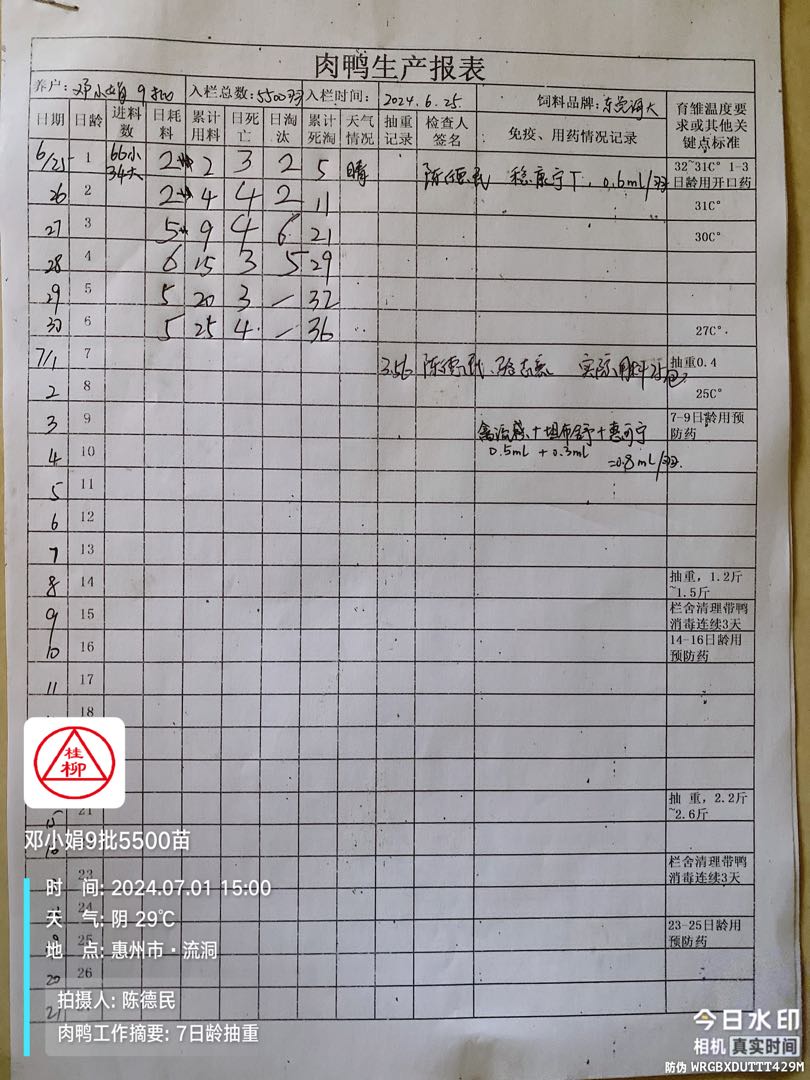 肉鸭生产报表
养户: 邓小娟 9批 入栏总数: 5500羽 入栏时间: 2024.6.25. 饲料品牌: 东莞海大 育雏温度要求或其他关键点标准
日期 日龄 进料数 日耗料 累计用料 日死亡 日淘汰 累计死淘 天气情况 抽重记录 检查人签名 免疫、用药情况记录
6/25 1 66小 34大 2 2 3 2 5 晴 陈德民 0.6ml/羽 32~31C° 1-3日龄用开口药
26 2 2 4 4 2 11 31C°
27 3 5 9 4 6 21 30C°
28 4 6 15 3 5 29
29 5 5 20 3 — 32
30 6 5 25 4 — 36 27C°
7/1 7 3.56 陈德民 实际用料 抽重0.4
2 8 25C°
3 9 7-9日龄用预防药
4 10 0.5ml + 0.3ml =0.8ml/羽.
5 11
6 12
7 13
8 14 抽重, 1.2斤~1.5斤
9 15 栏舍清理带鸭消毒连续3天
10 16 14-16日龄用预防药
11 17
18
桂
柳
21 抽 重, 2.2斤~2.6斤
邓小娟9批5500苗
23 栏舍清理带鸭消毒连续3天
时 间: 2024.07.01 15:00
24
天 气: 阴 29℃
25 23-25日龄用预防药
地 点: 惠州市·流洞
20 26
拍摄人: 陈德民
21
肉鸭工作摘要: 7日龄抽重
今日水印
相机 真实时间
防伪 WRGBXDUTTT429M